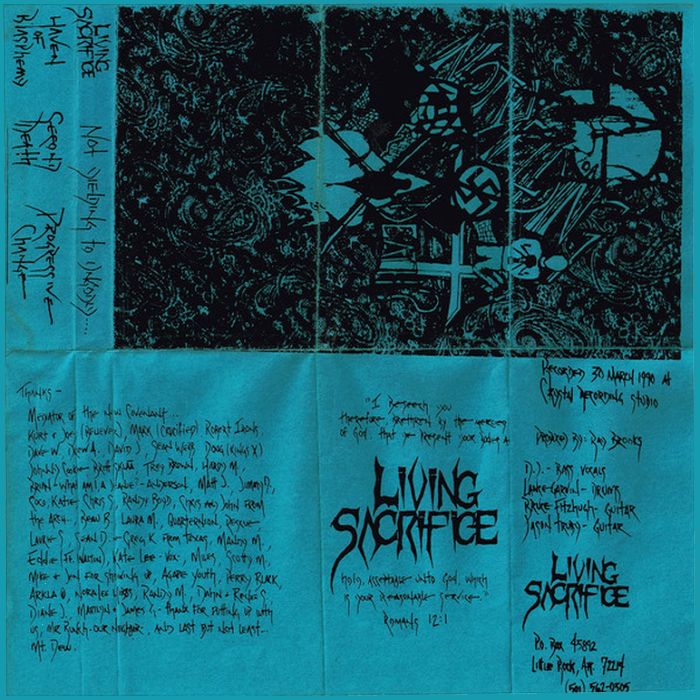 LIVING
SACRIFICE
Not Yielding to Ungodly....
HAVEN
OF
BLASPHEMY
SECOND
DEATH
PROGRESSIVE
CHANGE
Thanks -
Mediator of the New Covenant...
Kurt & Joey (Believer), Mark (Crucified) Robert
Dave W. (New A. David J., Sean Weir, Doug (Kings X)
Trey Brown, Hardy M.
Brian - What am I a Jeane? - Anderson, Matt J.
Coco, Katie, Chris S, Randy Boyd, Chris and John from
the Ark.. Beau B. Laura M., Quarternion,
Laurie S, Sean D. - Greg K from Texas, Mandy M.,
Eddie (Ft. Walton), Nate Lee - Vox, Miles, Scott M.
Mike & Jen for showing up, Agape Youth, Perry Black,
Arkla O, Randy M,
Diane J. Marilyn & James G - thanks for putting up with
us, Mr Runch - our neighbor, and last but not least...
Mt. Dew.
"I beseech you
therefore brethren by the mercies
of God, that ye present your bodies a
LIVING
SACRIFICE
holy, acceptable unto God, which
is your reasonable service."
Romans 12:1
Recorded 30 March 1990 at
Crystal Recording Studio
Produced by: Rad Brooks
D.J. - Bass vocals
Lance Garvin - Drums
Bruce Fitzhugh - Guitar
Jason Truby - Guitar
LIVING
SACRIFICE
P.O. Box 45892
Little Rock, Ar. 72214
(501) 562-0505